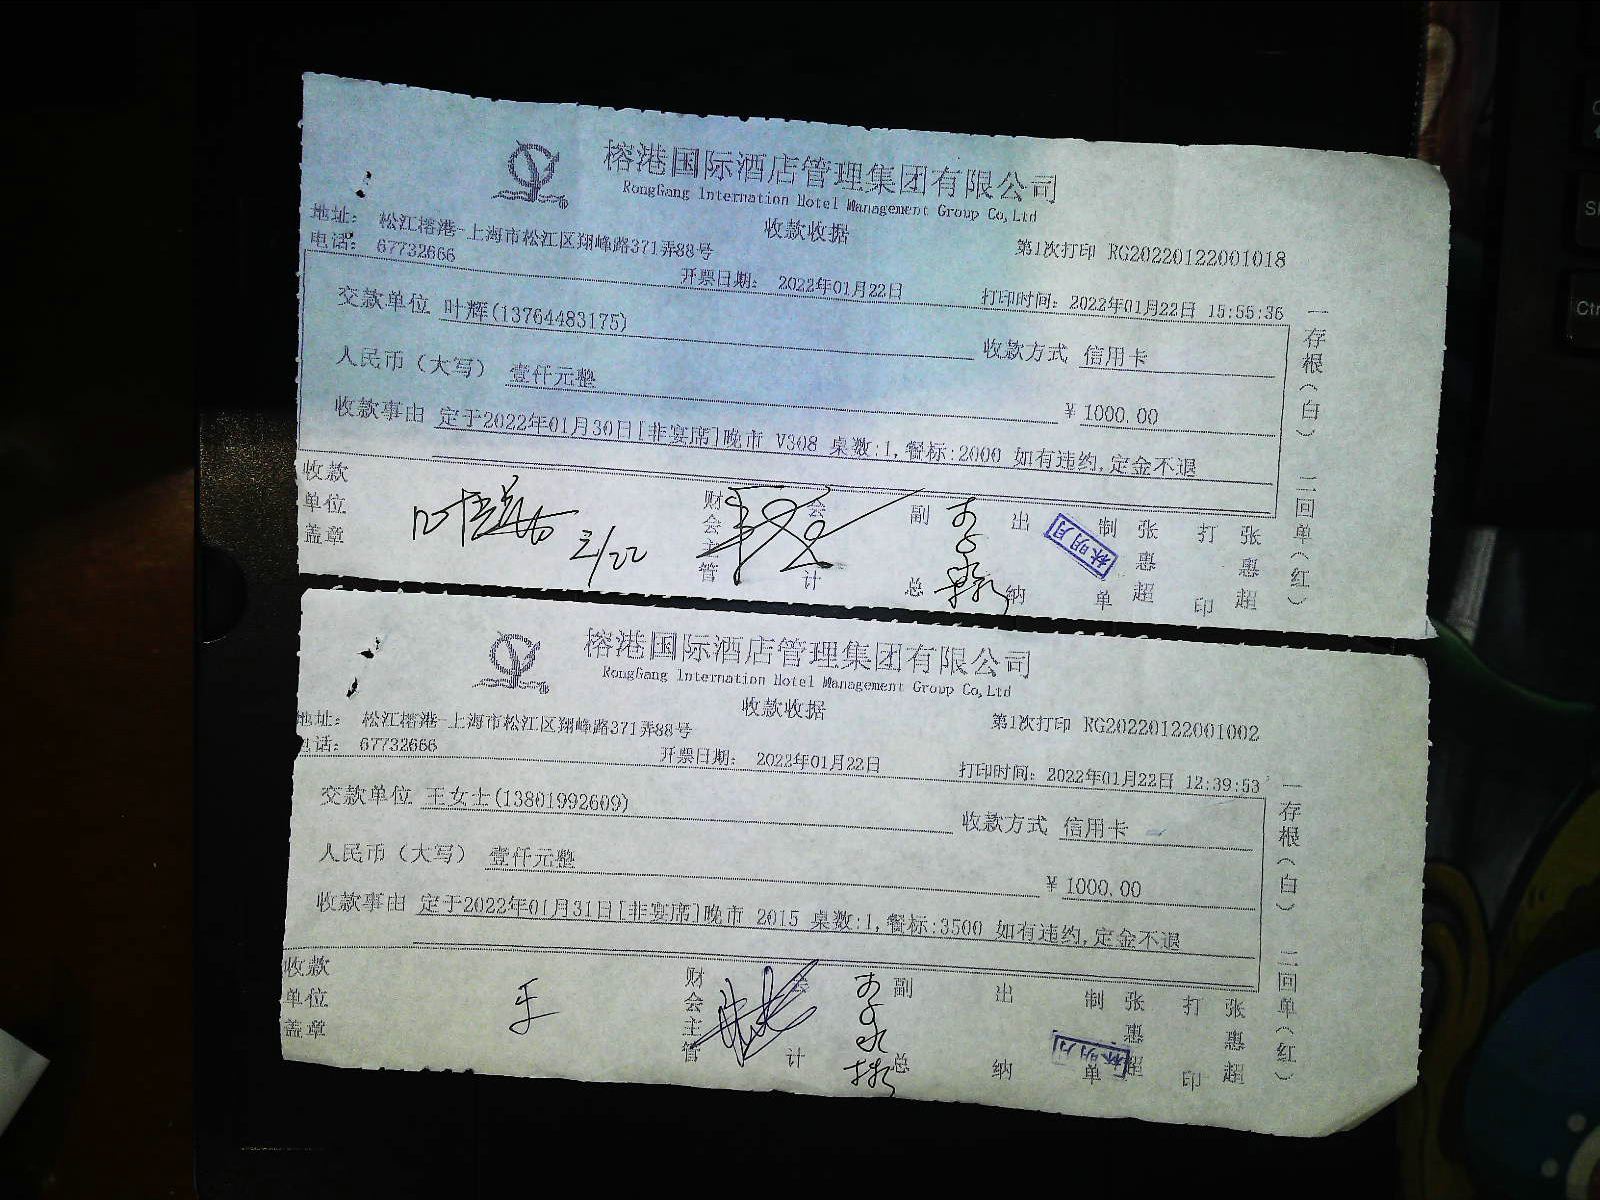 榕港国际酒店管理集团有限公司
RongGang Internation Hotel Management Group Co,Ltd
收款收据
地址： 松江榕港-上海市松江区翔峰路371弄88号
第1次打印 RG20220122001018
电话： 67732666
开票日期： 2022年01月22日
打印时间：2022年01月22日 15:55:36
交款单位 叶辉(13764483175)
收款方式 信用卡
人民币（大写） 壹仟元整
¥ 1000.00
收款事由 定于2022年01月30日[非宴席]晚市 V308 桌数:1,餐标:2000 如有违约,定金不退
一存根（白） 二回单（红）
收款单位盖章
1/22
财会主管
会计
副总
出纳
林明月
制单 张惠超
打印 张惠超
榕港国际酒店管理集团有限公司
RongGang Internation Hotel Management Group Co,Ltd
收款收据
地址： 松江榕港-上海市松江区翔峰路371弄88号
第1次打印 RG20220122001002
电话： 67732666
开票日期： 2022年01月22日
打印时间：2022年01月22日 12:39:53
交款单位 王女士(13801992609)
收款方式 信用卡
人民币（大写） 壹仟元整
¥ 1000.00
收款事由 定于2022年01月31日[非宴席]晚市 2015 桌数:1,餐标:3500 如有违约,定金不退
一存根（白） 二回单（红）
收款单位盖章
王
财会主管
会计
副总
出纳
林明月
制单 张惠超
打印 张惠超